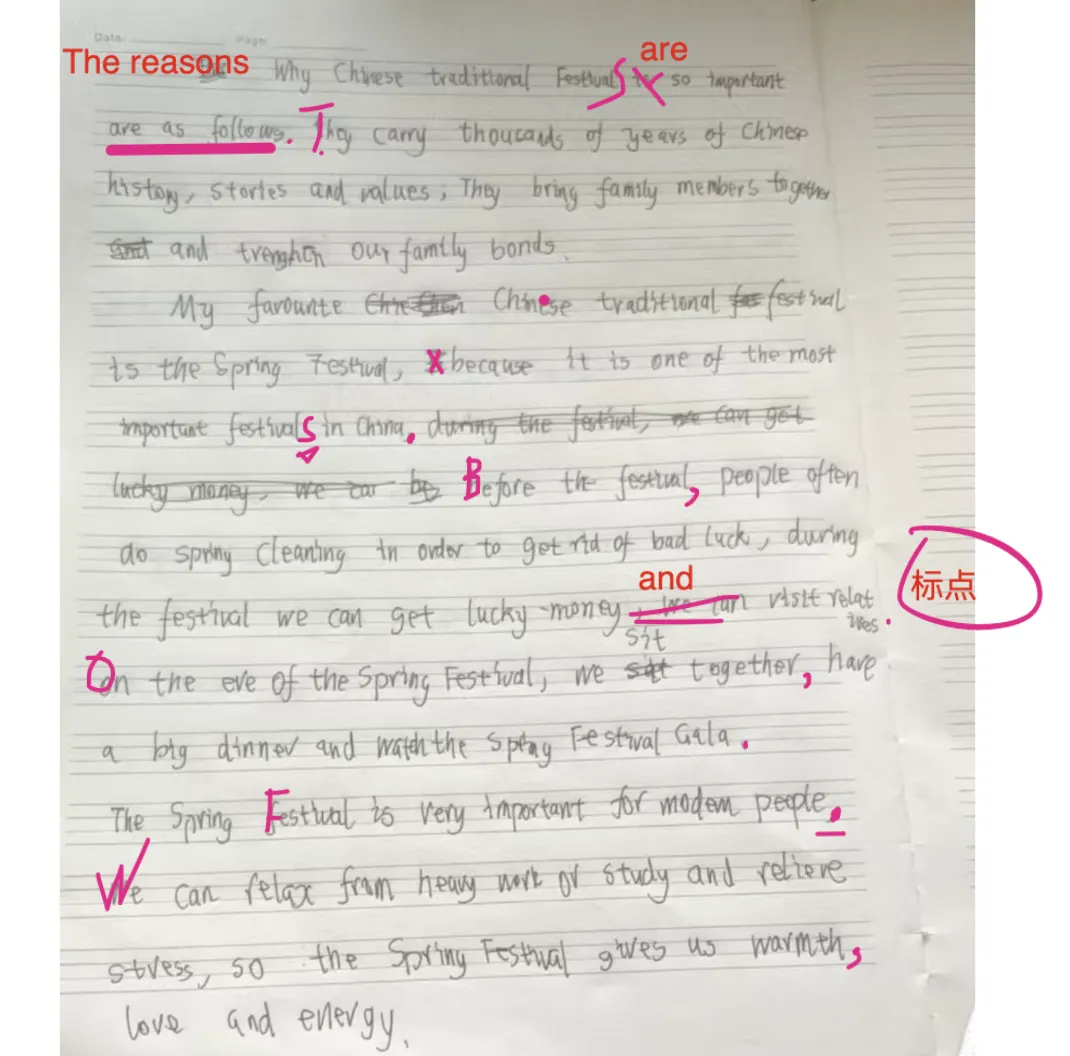 Date: Page:
The reasons Why Chinese traditional Festivals are so important
are as follows. They carry thoucands of years of Chinese
history, stories and values; They bring family members together
and trenghen our family bonds.
My favourite Chinese traditional festival
is the Spring Festival, because it is one of the most
important festivals in China. during the festival, we can get
lucky money, we can be Before the festival, people often
do spring cleaning in order to get rid of bad luck, during
and
the festival we can get lucky money, we can visit relatives.
标点
sit
On the eve of the Spring Festival, we together, have
a big dinner and watch the Spring Festival Gala.
The Spring Festival is very important for modern people.
We can relax from heavy work or study and relieve
stress, so the Spring Festival gives us warmth,
love and energy.